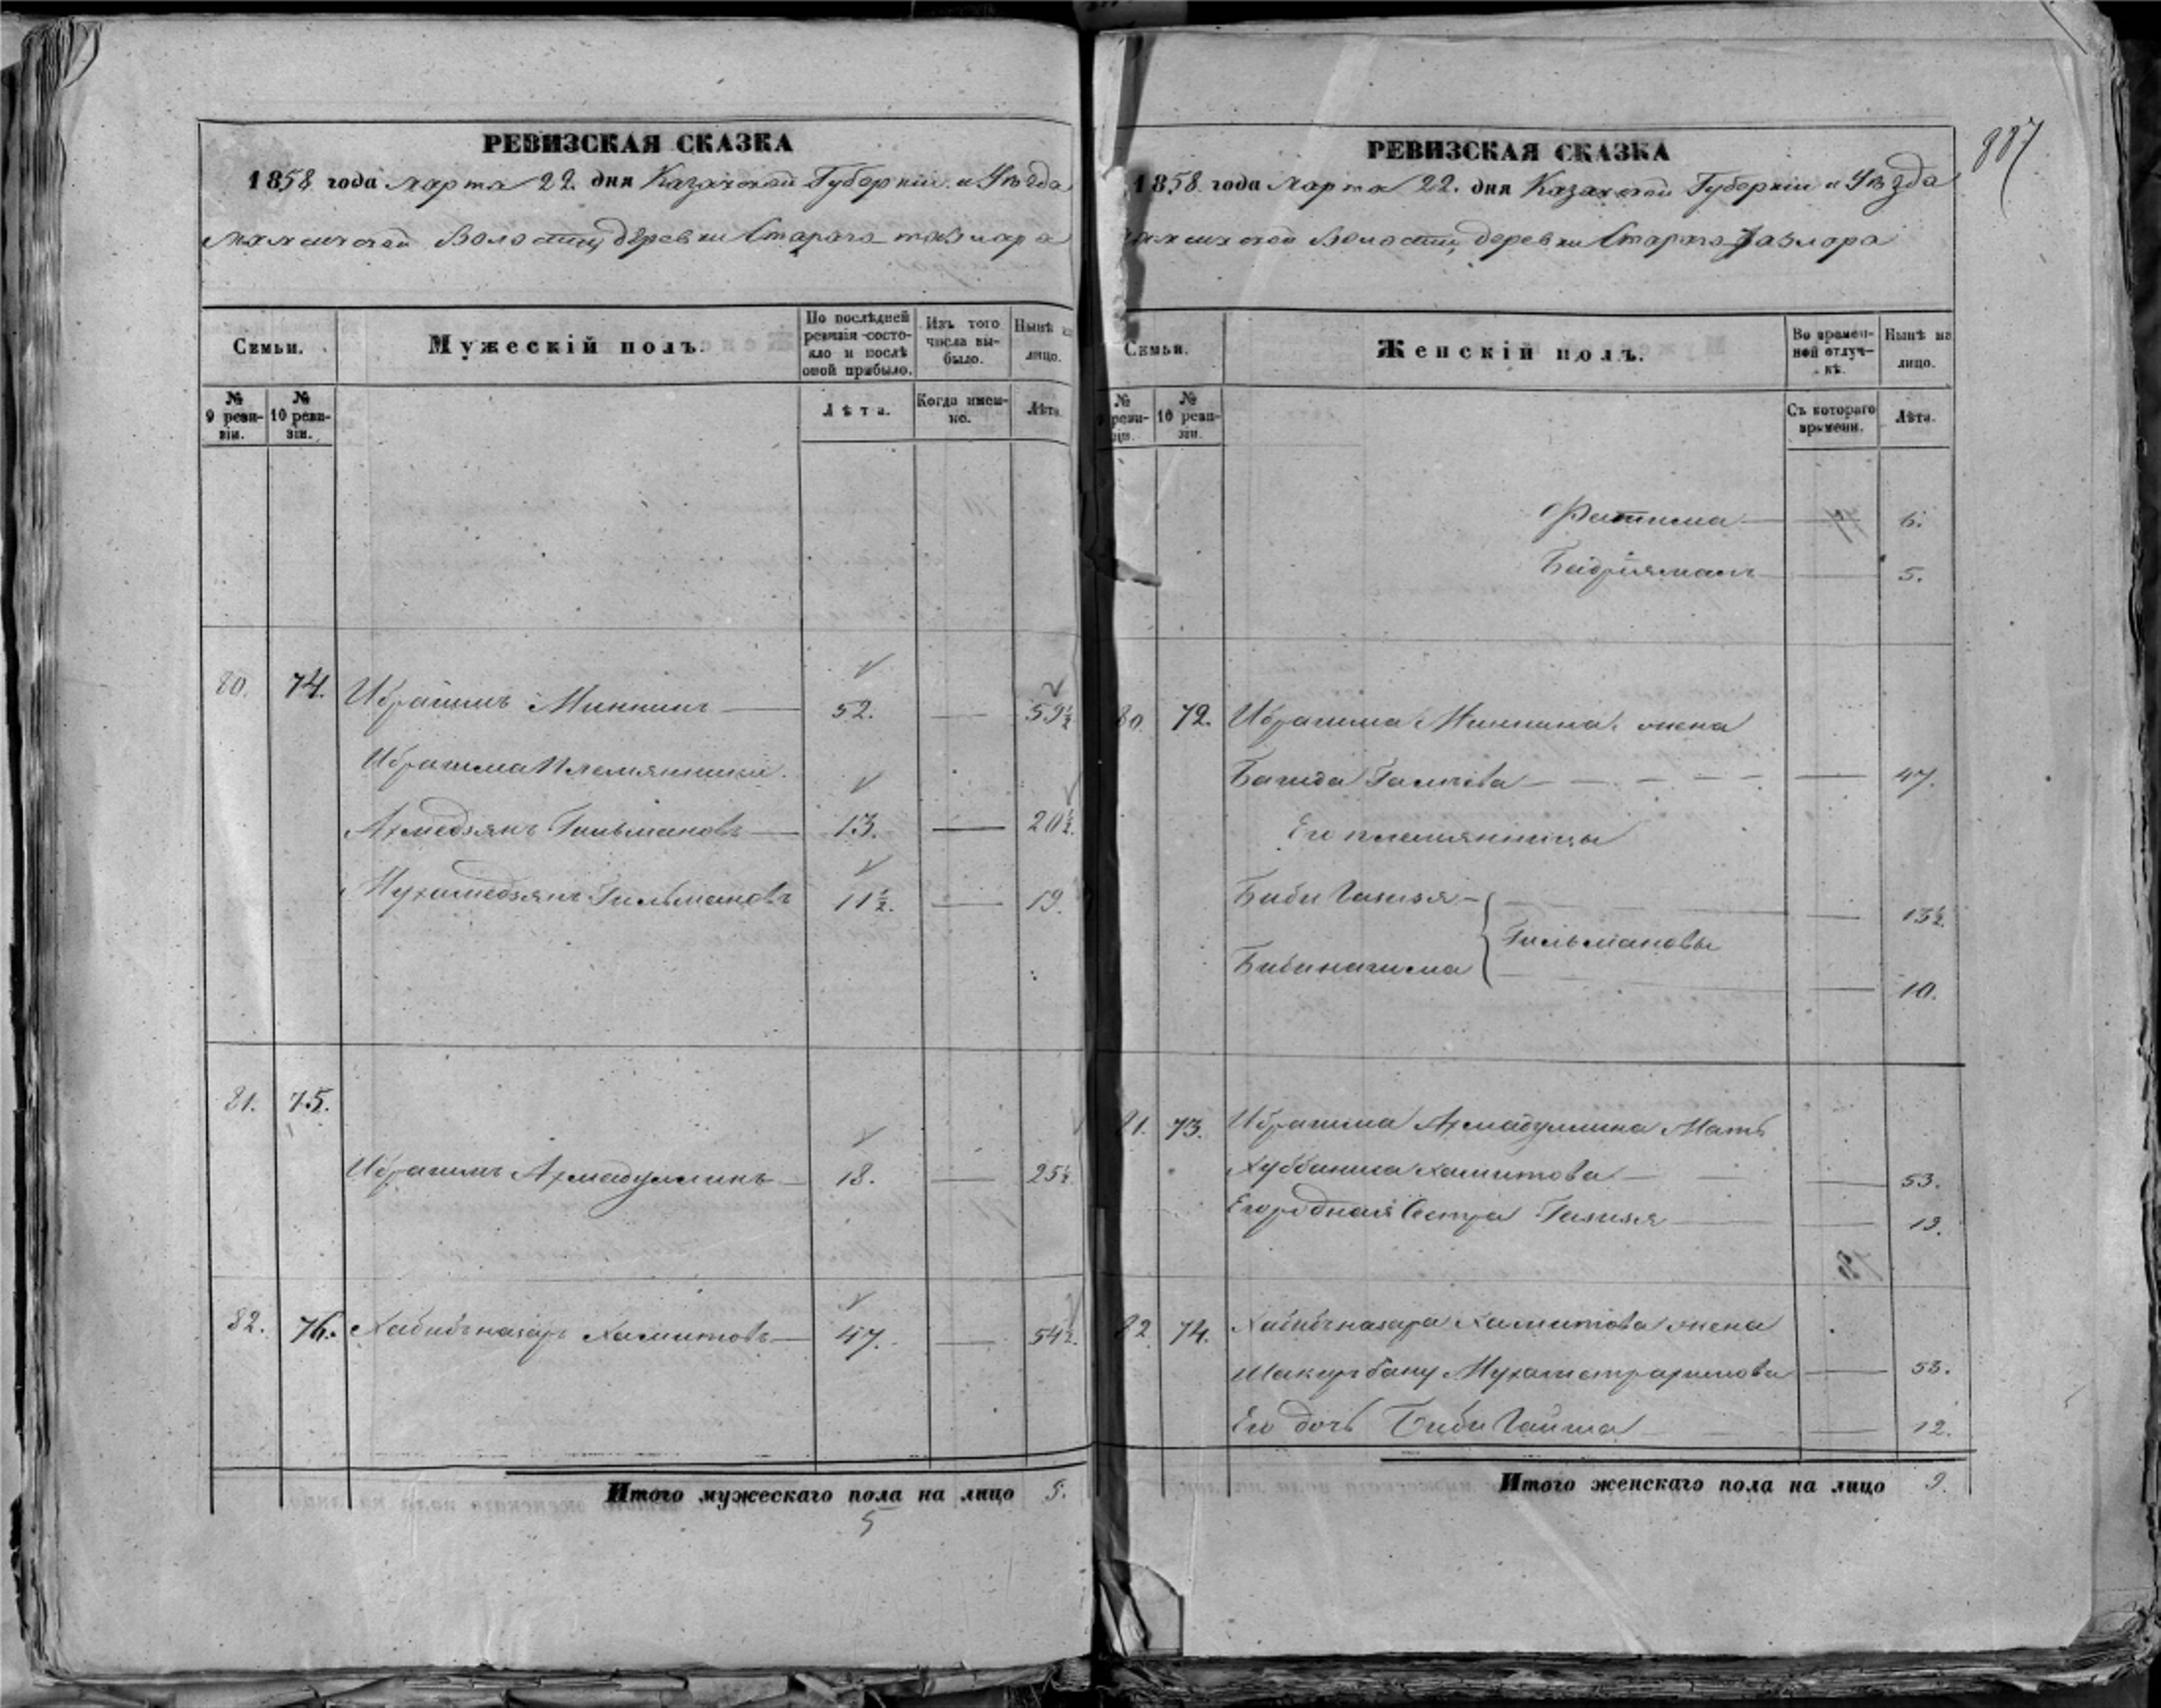 РЕВИЗСКАЯ СКАЗКА
1858 года марта 22. дня Казанской Губернии и Уѣзда
Мамсинской Волости, деревни Стараго тазлара
Семьи.
Мужескій полъ.
По послѣдней ревизіи состояло и послѣ оной прибыло.
Изъ того числа выбыло.
Нынѣ на лицо.
№ 9 ревизіи.
№ 10 ревизіи.
Лѣта.
Когда именно.
Лѣта.
80. 74. Ибрагимъ Миннинъ 52. 59½
Ибрагима Племянники.
Ахмедзянъ Гильмановъ 13. 20½.
Мухамедзянъ Гильмановъ 11½. 19.
81. 75.
Ибрагимъ Ахмадуллинъ 18. 25½.
82. 76. Хабибъназаръ Хамитовъ 47. 54½.
Итого мужескаго пола на лицо 5.
5
887
РЕВИЗСКАЯ СКАЗКА
1858 года марта 22. дня Казанской Губерніи и Уѣзда
Волости, деревни Стараго Тазлара
Семьи.
Женскій полъ.
Во временной отлучкѣ.
Нынѣ на лицо.
№ 9 ревизіи.
№ 10 ревизіи.
Съ котораго времени.
Лѣта.
Фатима 6.
Бадріямалъ 5.
80 72. Ибрагима Миннина жена
Багида Галиева 47.
Его племянницы
Биби Газизя 13½.
Гильмановы
Бибинагима 10.
81. 73. Ибрагима Ахмадуллина Мать
Хуббаниса Хамитова 53.
Его родная Сестра Газизя 19.
82 74. Хабибъназара Хамитова жена
Шакирбану Мухаметрахимова 53.
Его дочь Биби Гайша 12.
Итого женскаго пола на лицо 9.